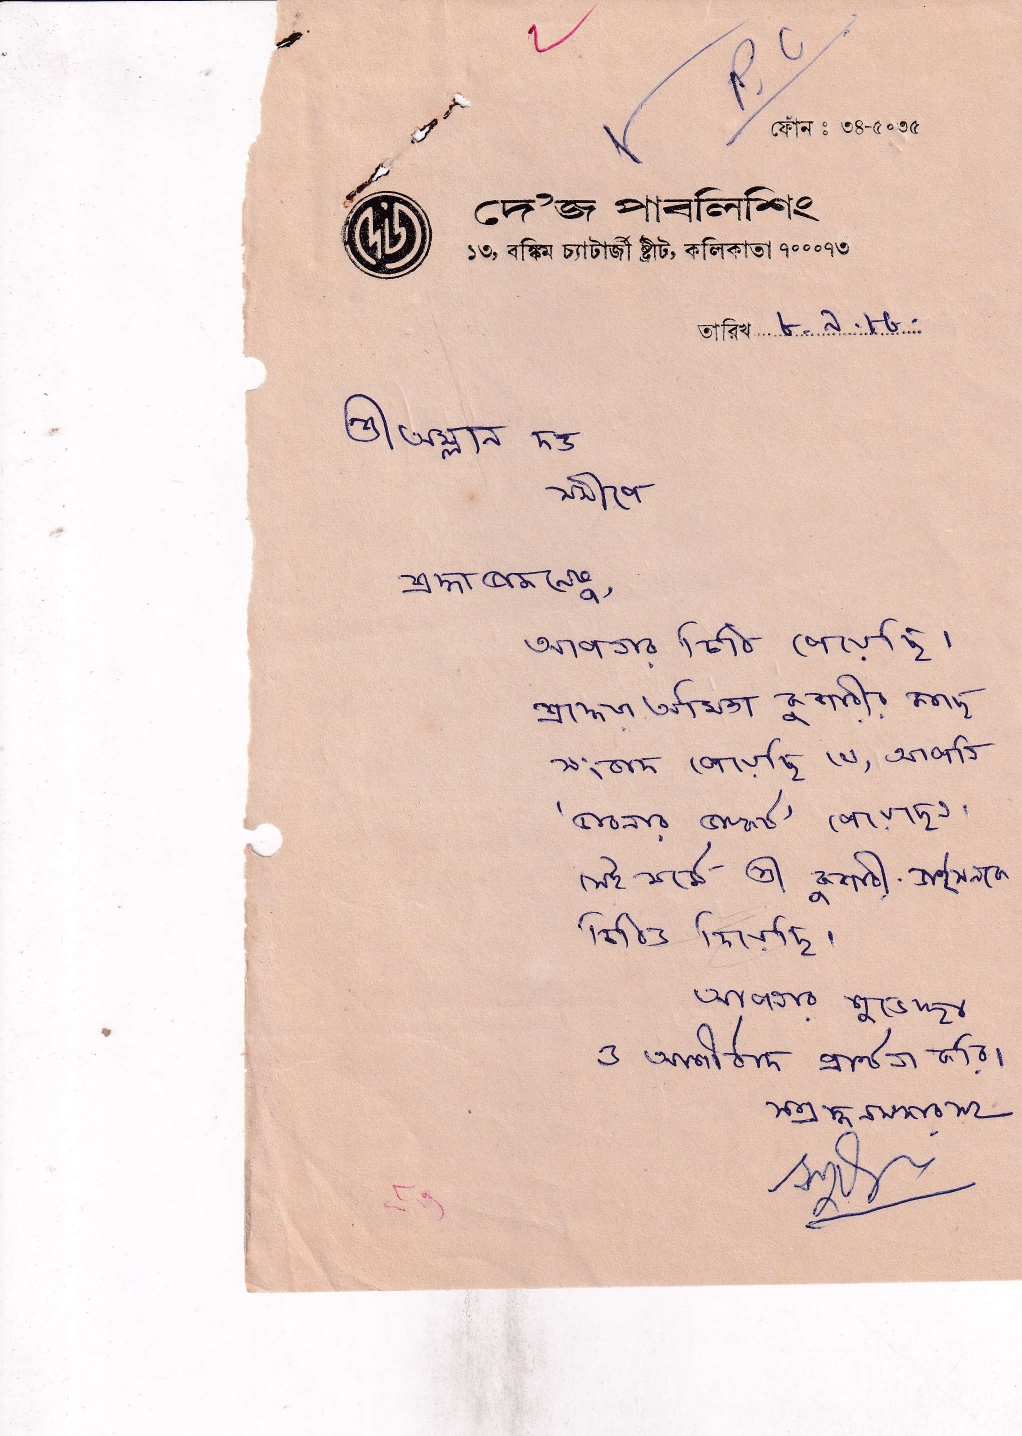 P. C
ফোন : ৩৪-৫০৩৫
দে'জ পাবলিশিং
১৩, বঙ্কিম চ্যাটার্জী ষ্ট্রীট, কলিকাতা ৭০০০৭৩
তারিখ ৮.৯.৮৮.
শ্রী অম্লান দত্ত
সমীপে
শ্রদ্ধাভাজনেষু,
আপনার চিঠি পেয়েছি।
শ্রদ্ধেয় অমিতা কুশারীর কাছে
সংবাদ পেয়েছি যে, আপনি
'ভাবনার ভাস্কর্য' পেয়েছেন।
সেই মর্মে শ্রী কুশারী
চিঠিও দিয়েছি।
আপনার শুভেচ্ছা
ও আশীর্বাদ প্রার্থনা করি।
সশ্রদ্ধ নমস্কারসহ